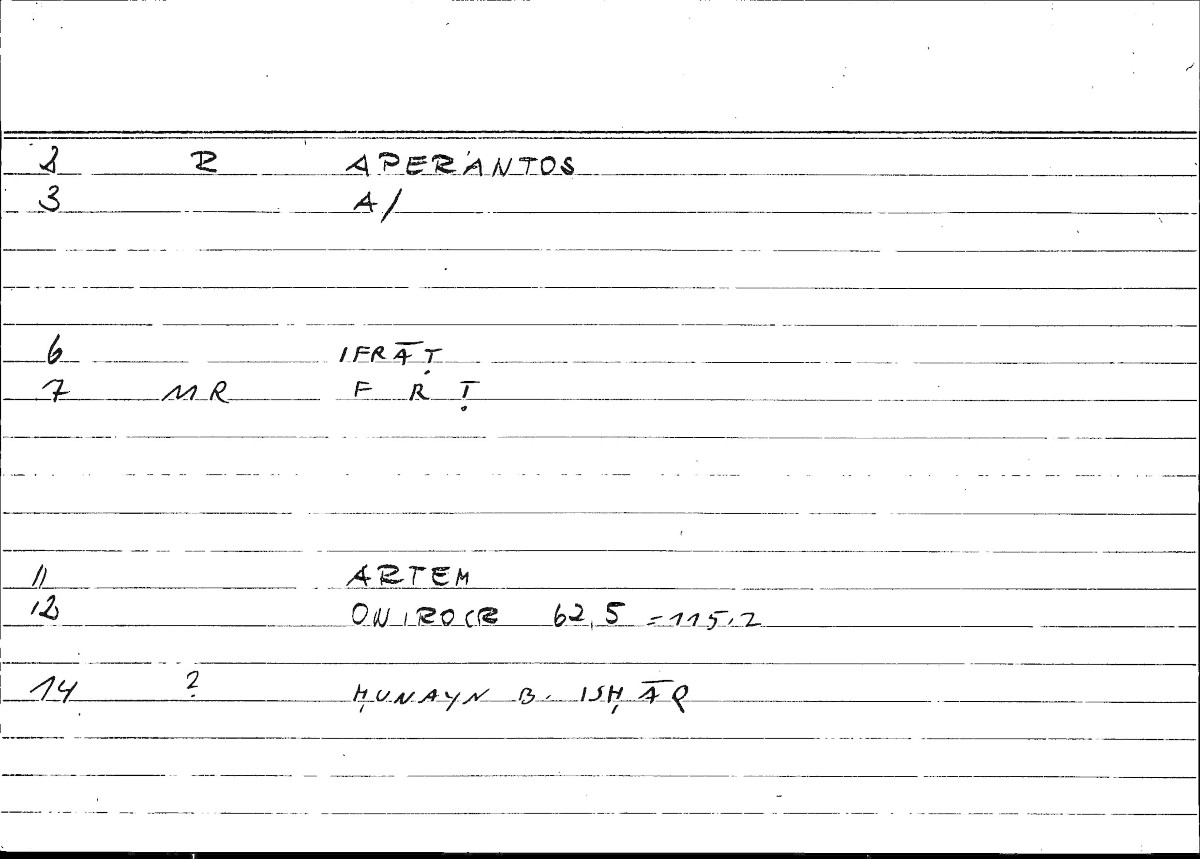 2 R APERÁNTOS
3 A/
6 IFRĀṬ
7 MR F R Ṭ
11 ARTEM
12 ONIROCR 62,5 = 115.2
14 ? ḤUNAYN B. ISḤĀQ